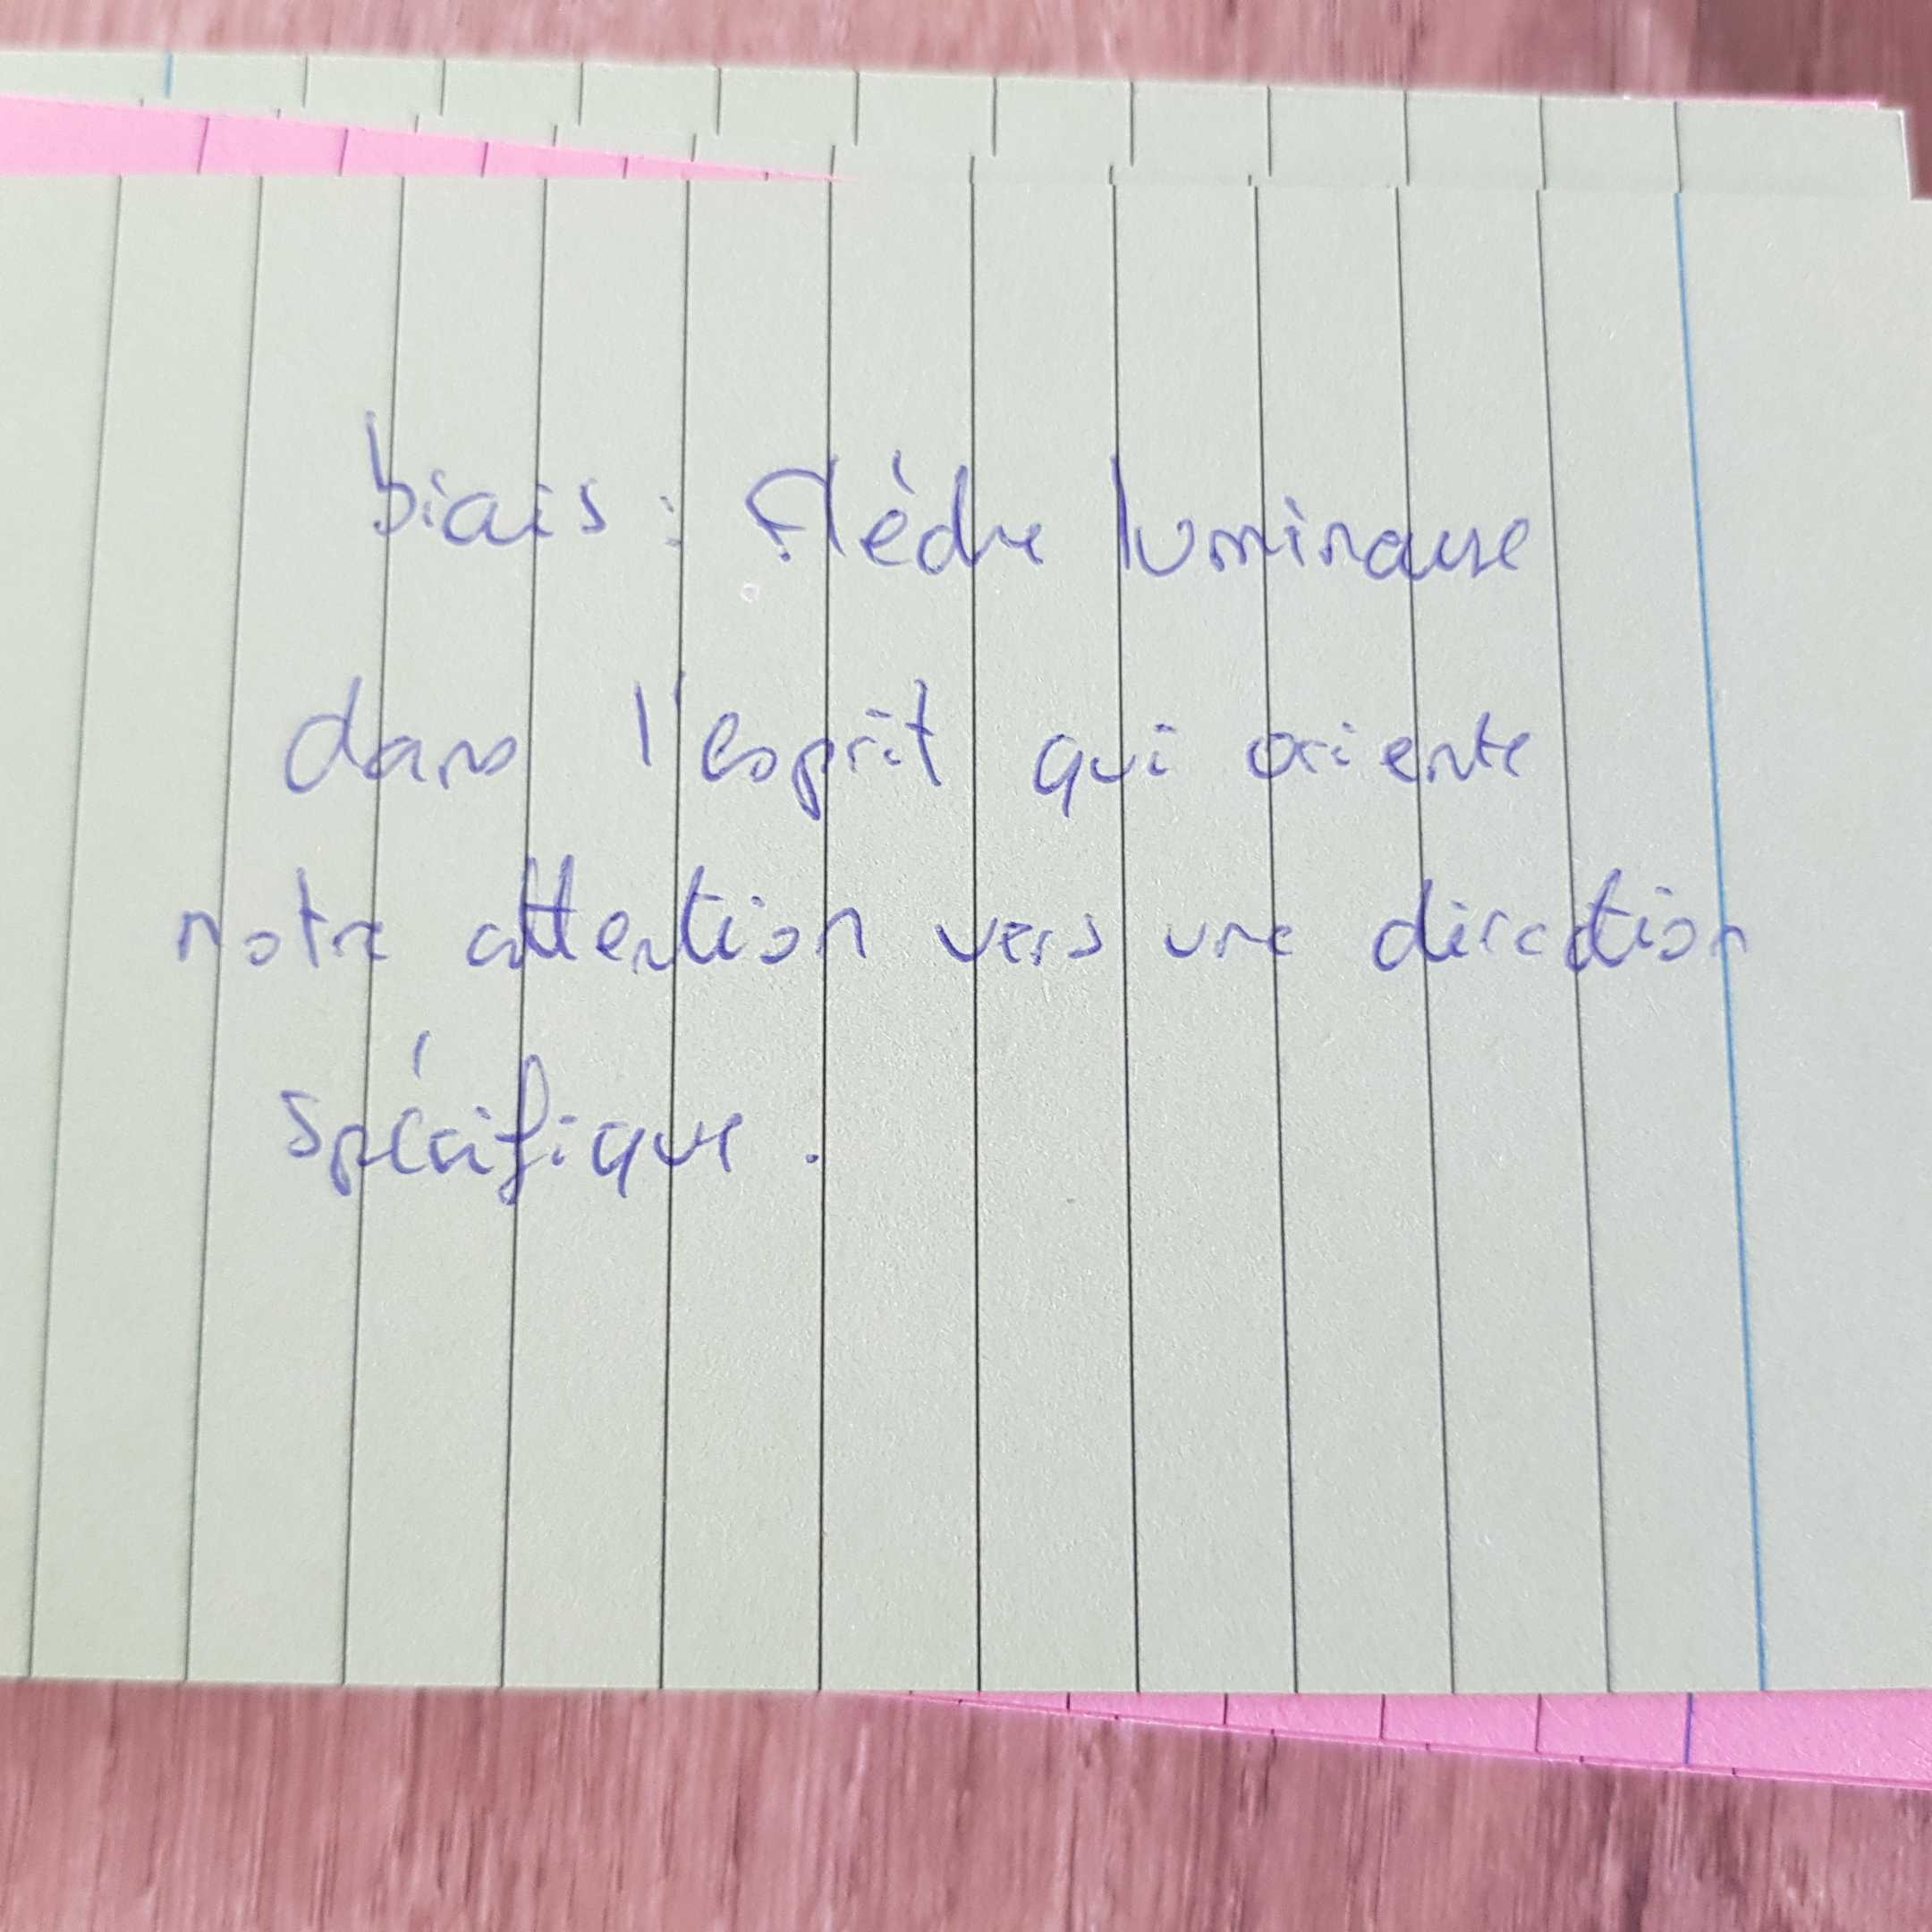 biais : flèche lumineuse
dans l'esprit qui oriente
notre attention vers une direction
spécifique.